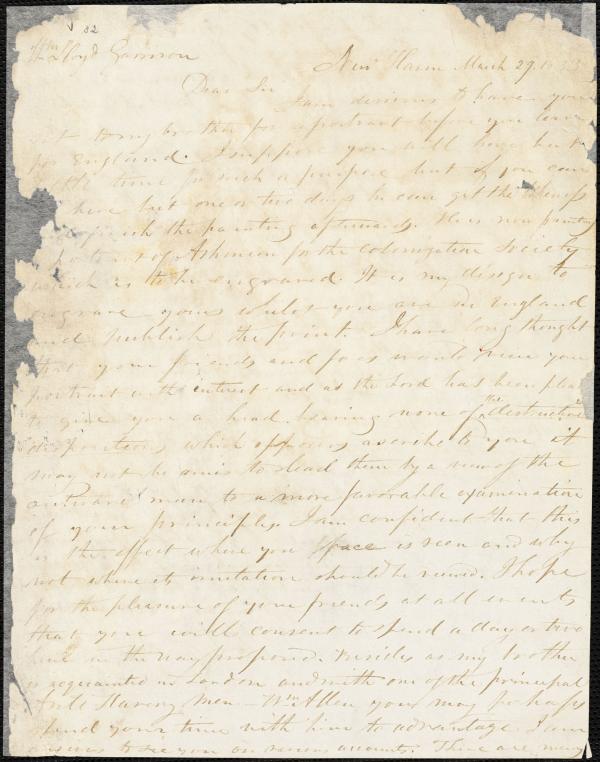 V 32
Wm Lloyd Garrison
New Haven March 29. 1833
Dear Sir
I am desirous to have you
sit to my brother for a portrait before you leave
for England. I suppose you will have but
little time for such a purpose but if you can
here but one or two days he can get the likeness
finish the painting afterwards. He is now painting
portrait of Ashmun for the Colonization Society
which is to be engraved. It is my design to
engrave yours whilst you are in England
and publish the print. I have long thought
that your friends and foes would view your
portrait with interest and as the Lord has been pleas
to give you a head bearing none of the destructive
dispositions which opposers ascribe to you it
may not be amiss to lead them by a view of the
outward man to a more favorable examination
of your principles. I am confident that this
is the effect where you face is seen and why
not where its imitation should be viewed. I hope
for the pleasure of your friends at all events
that you will consent to spend a day or two
here in the way proposed. Besides as my brother
is acquainted in London and with one of the principal
Anti Slavery Men - Wm Allen you may perhaps
spend your time with him to advantage. I am
anxious to see you on various accounts. There are many